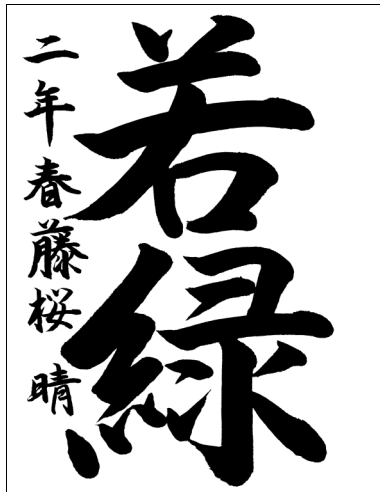 若緑
二年春藤桜 晴